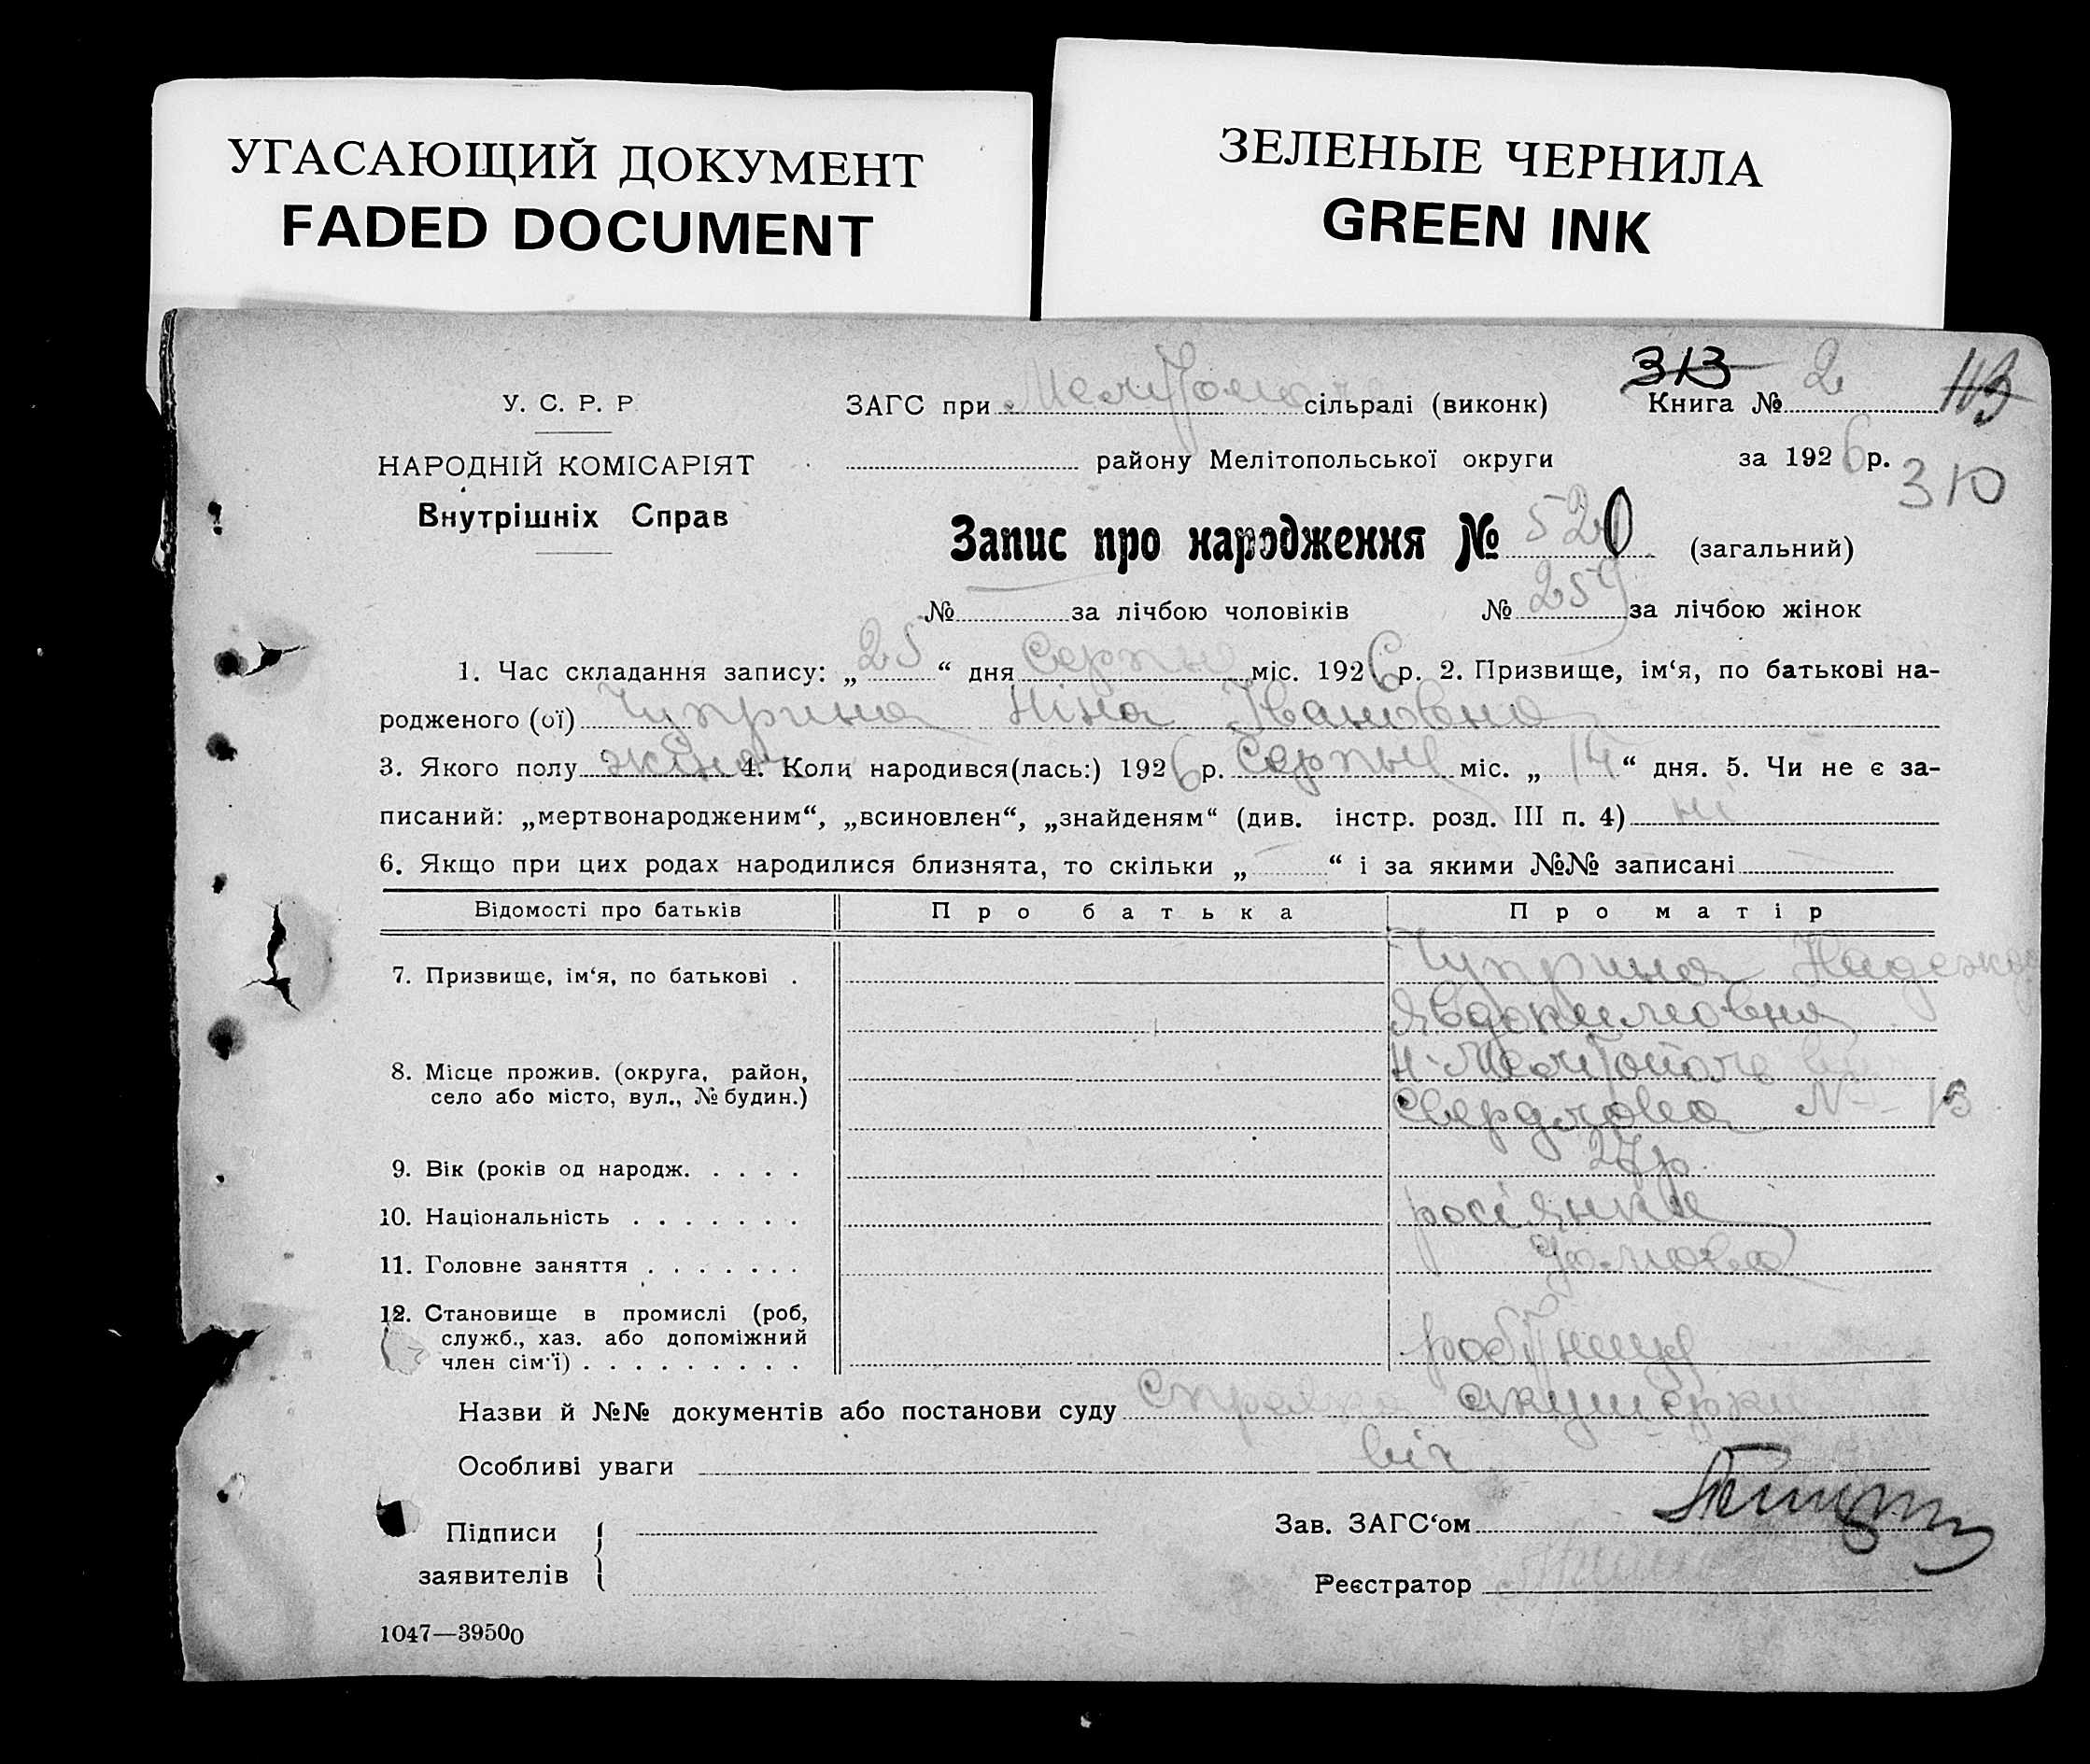 УГАСАЮЩИЙ ДОКУМЕНТ
FADED DOCUMENT
ЗЕЛЕНЫЕ ЧЕРНИЛА
GREEN INK
313 2 113
У. С. Р. Р
ЗАГС при сільраді (виконк) Книга №
НАРОДНІЙ КОМІСАРІЯТ
району Мелітопольської округи за 1926 р.
310
Внутрішніх Справ
Запис про народження № 520 (загальний)
№ за лічбою чоловіків № 259 за лічбою жінок
1. Час складання запису: „ 25 “ дня Серпня міс. 1926 р. 2. Призвище, ім‘я, по батькові на-
родженого (ої) Чуприна Ніна Івановна
3. Якого полу жіноч 4. Коли народився(лась:) 1926 р. Серпня міс. „ 14 “ дня. 5. Чи не є за-
писаний: „мертвонародженим“, „всиновлен“, „знайденям“ (див. інстр. розд. III п. 4) ні
6. Якщо при цих родах народилися близнята, то скільки „ — “ і за якими №№ записані
Відомості про батьків Про батька Про матір
7. Призвище, ім‘я, по батькові . Чуприна Надежда
Явдокимовна
8. Місце прожив. (округа, район, Н-Мелітополь
село або місто, вул., № будин.) Свердлова № 13
9. Вік (років од народж. . . . . 27 р.
10. Національність . . . . . . . росіянка
11. Головне заняття . . . . . . .
12. Становище в промислі (роб,
служб., хаз. або допоміжний
член сім‘ї) . . . . . . . . . робітниця
Назви й №№ документів або постанови суду Справка акушерки
Особливі уваги
Підписи
заявителів
Зав. ЗАГС‘ом
Реєстратор
1047—39500